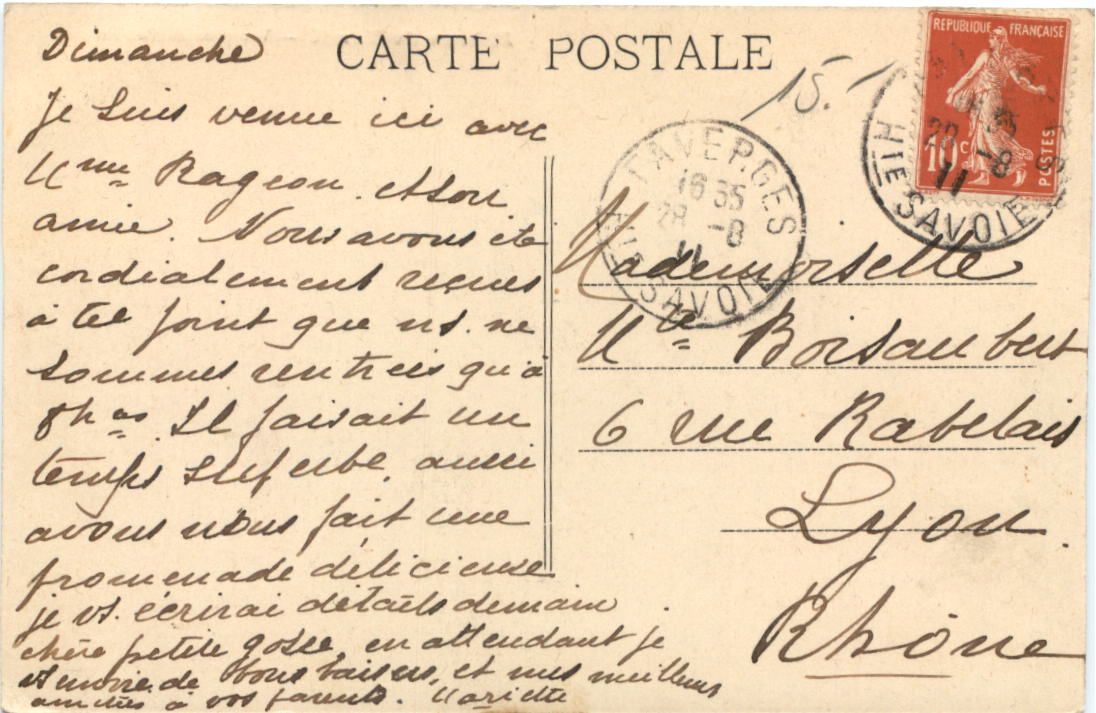 Dimanche
CARTE POSTALE
15.
REPUBLIQUE FRANÇAISE
10 c
POSTES
Hte SAVOIE
28 -8
11
FAVERGES
16 35
28 -8
11
Hte SAVOIE
Je suis venue ici avec
Mme Rageon et son
amie. Nous avons été
cordialement reçues
à tel point que ns. ne
sommes rentrées qu'à
8h. Il faisait un
temps superbe aussi
avons nous fait une
promenade délicieuse
je vs. écrirai détails demain
chère petite gosse, en attendant je
vs envoie de bons baisers, et mes meilleures
amitiés à vos parents. Mariette
Mademoiselle
Mlle Boisaubert
6 rue Rabelais
Lyon.
Rhône